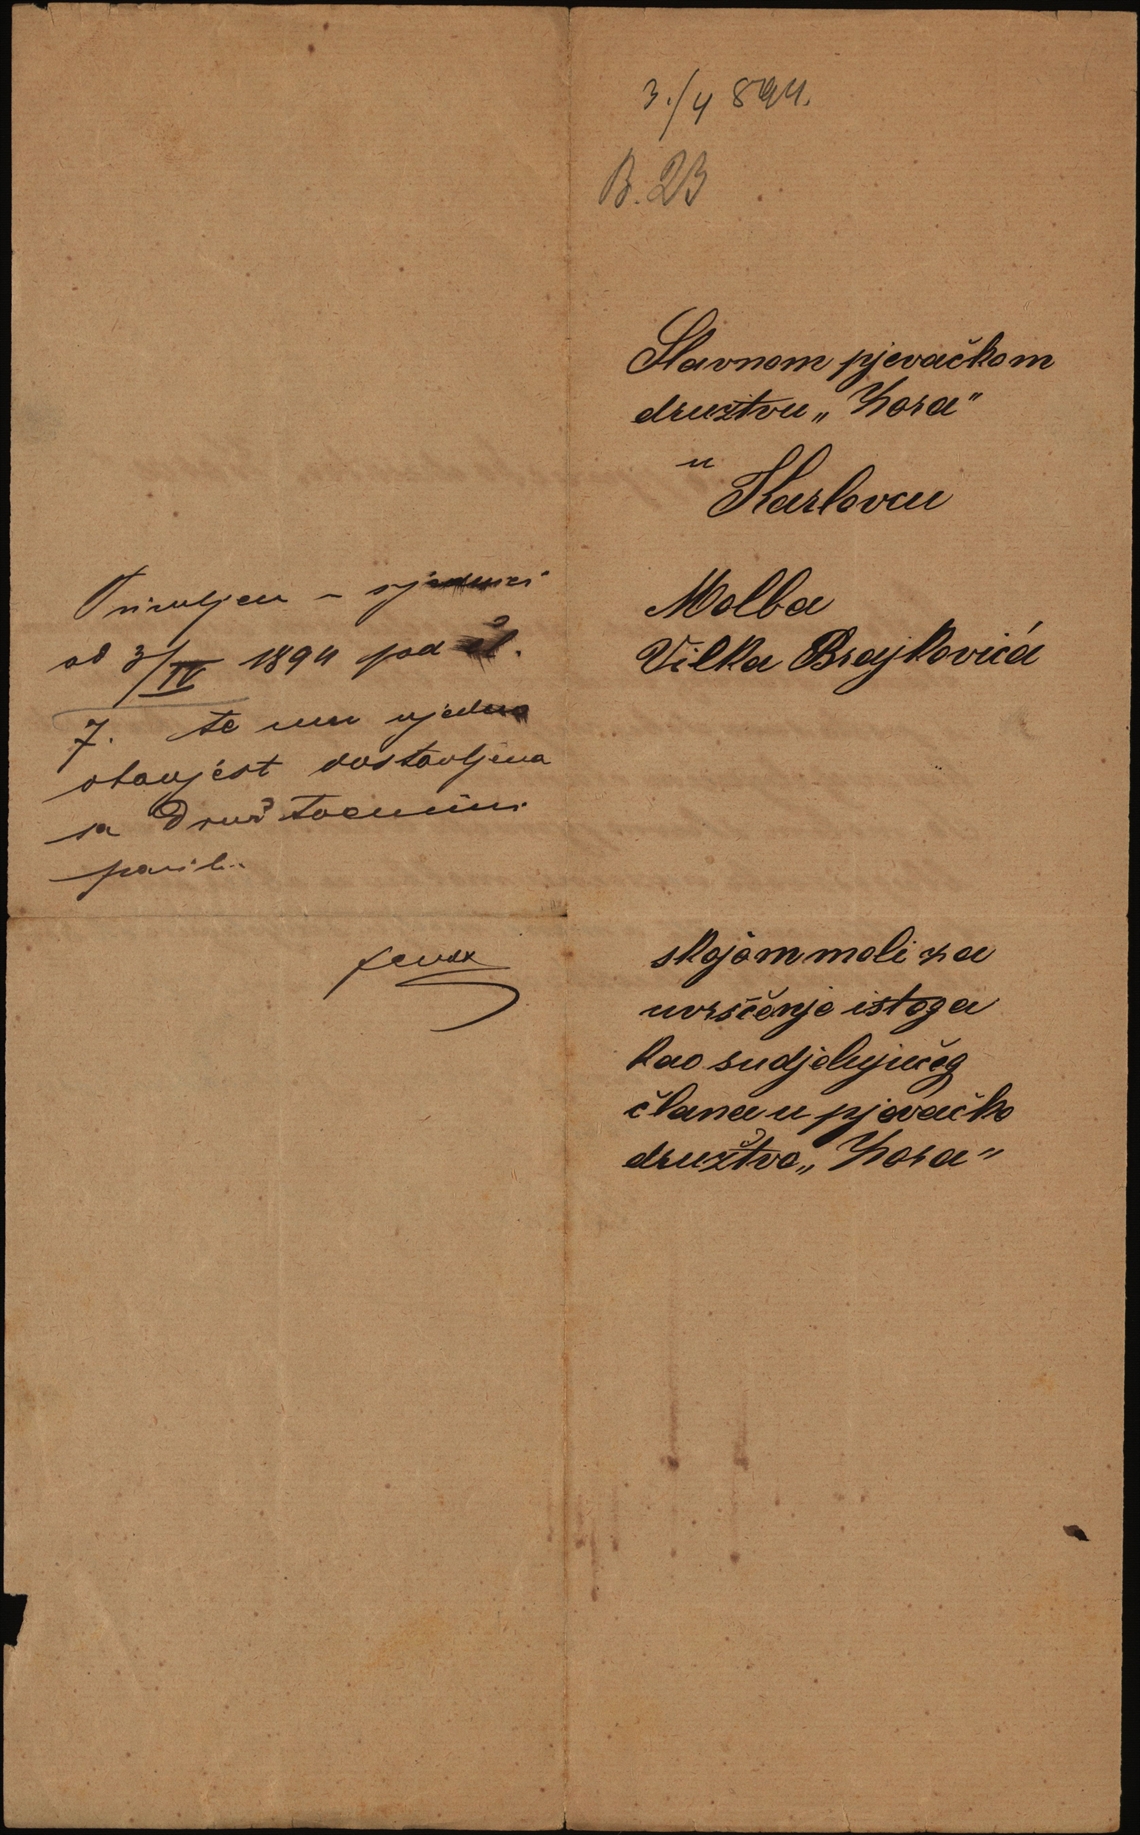 3./4 894.
B. 23
Slavnom pjevačkom
družtvu „Zora"
u
Karlovcu
Molba
Vilka Brajkovića
skojom moli za
uvrsčenje istoga
kao sudjelujučeg
člana u pjevačko
družtvo „Zora"
Primljen u sjednici
od 3/IV 1894 pod čl.
7. te mu ujedno
obavjest dostavljena
sa Družtvenim
pravil.